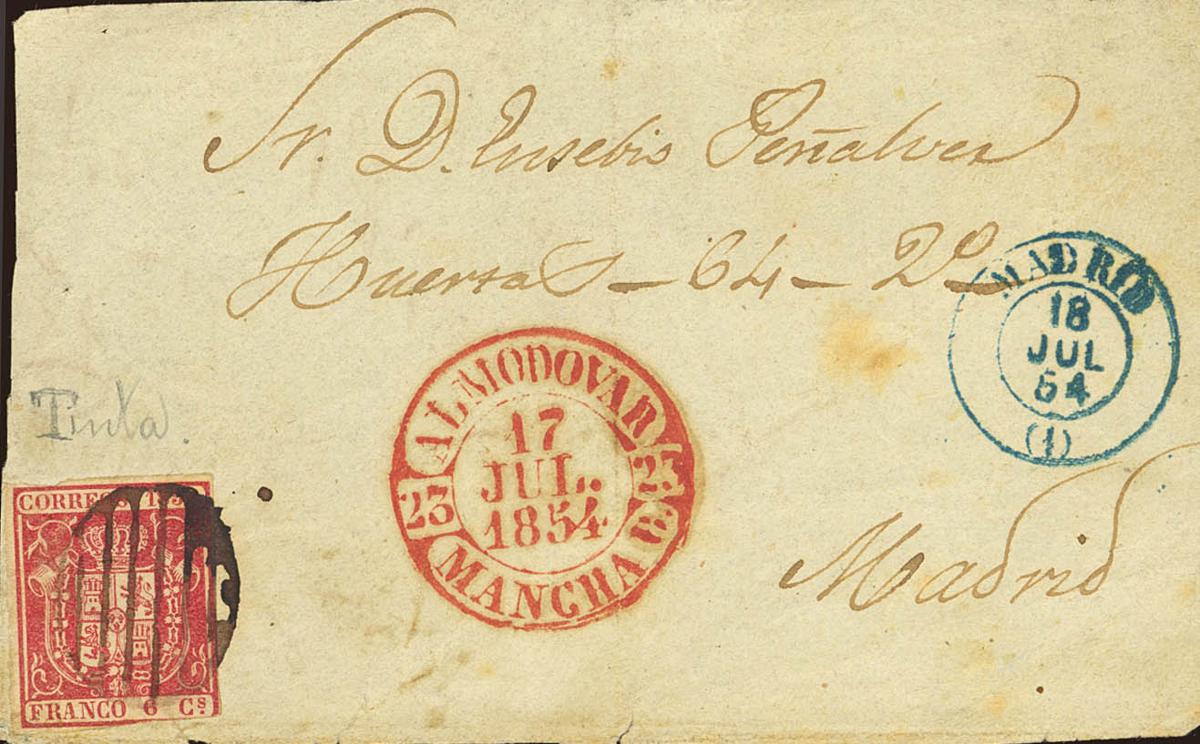 Sr. D. Eusebio Peñalver
Huertas - 64 - 2º
MADRID
18
JUL
54
(1)
ALMODOVAR
23
17
JUL.
1854
MANCHA B
Tinta.
Madrid
CORREOS
FRANCO 6 Cs.